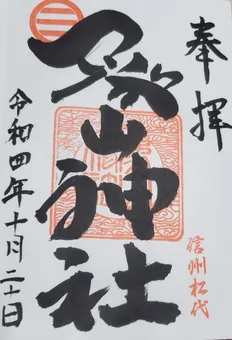 奉拝
象山神社
信州松代
令和四年十月二十日